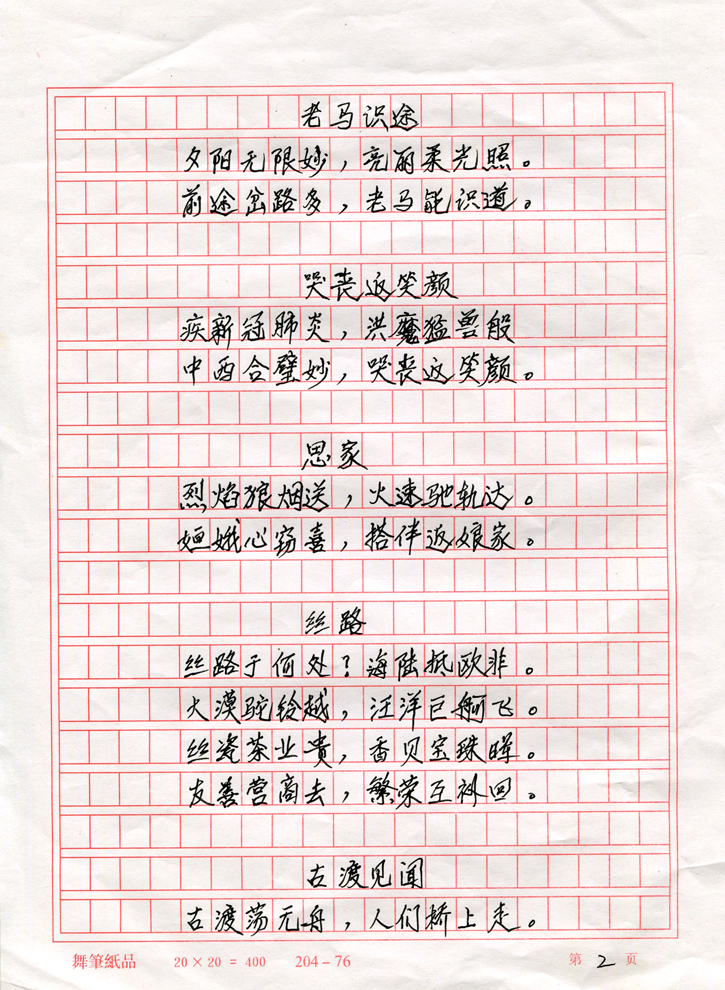 老马识途
夕阳无限妙，亮丽柔光照。
前途岔路多，老马能识道。
哭丧返笑颜
疾新冠肺炎，洪魔猛兽般
中西合璧妙，哭丧返笑颜。
思家
烈焰狼烟送，火速驰轨达。
姮娥心窃喜，搭伴返娘家。
丝路
丝路于何处？海陆抵欧非。
大漠驼铃越，汪洋巨舸飞。
丝瓷茶业贵，香贝宝珠晖。
友善营商去，繁荣互补回。
古渡见闻
古渡荡无舟，人们桥上走。
舞筆紙品 20×20=400 204-76 第 2 页